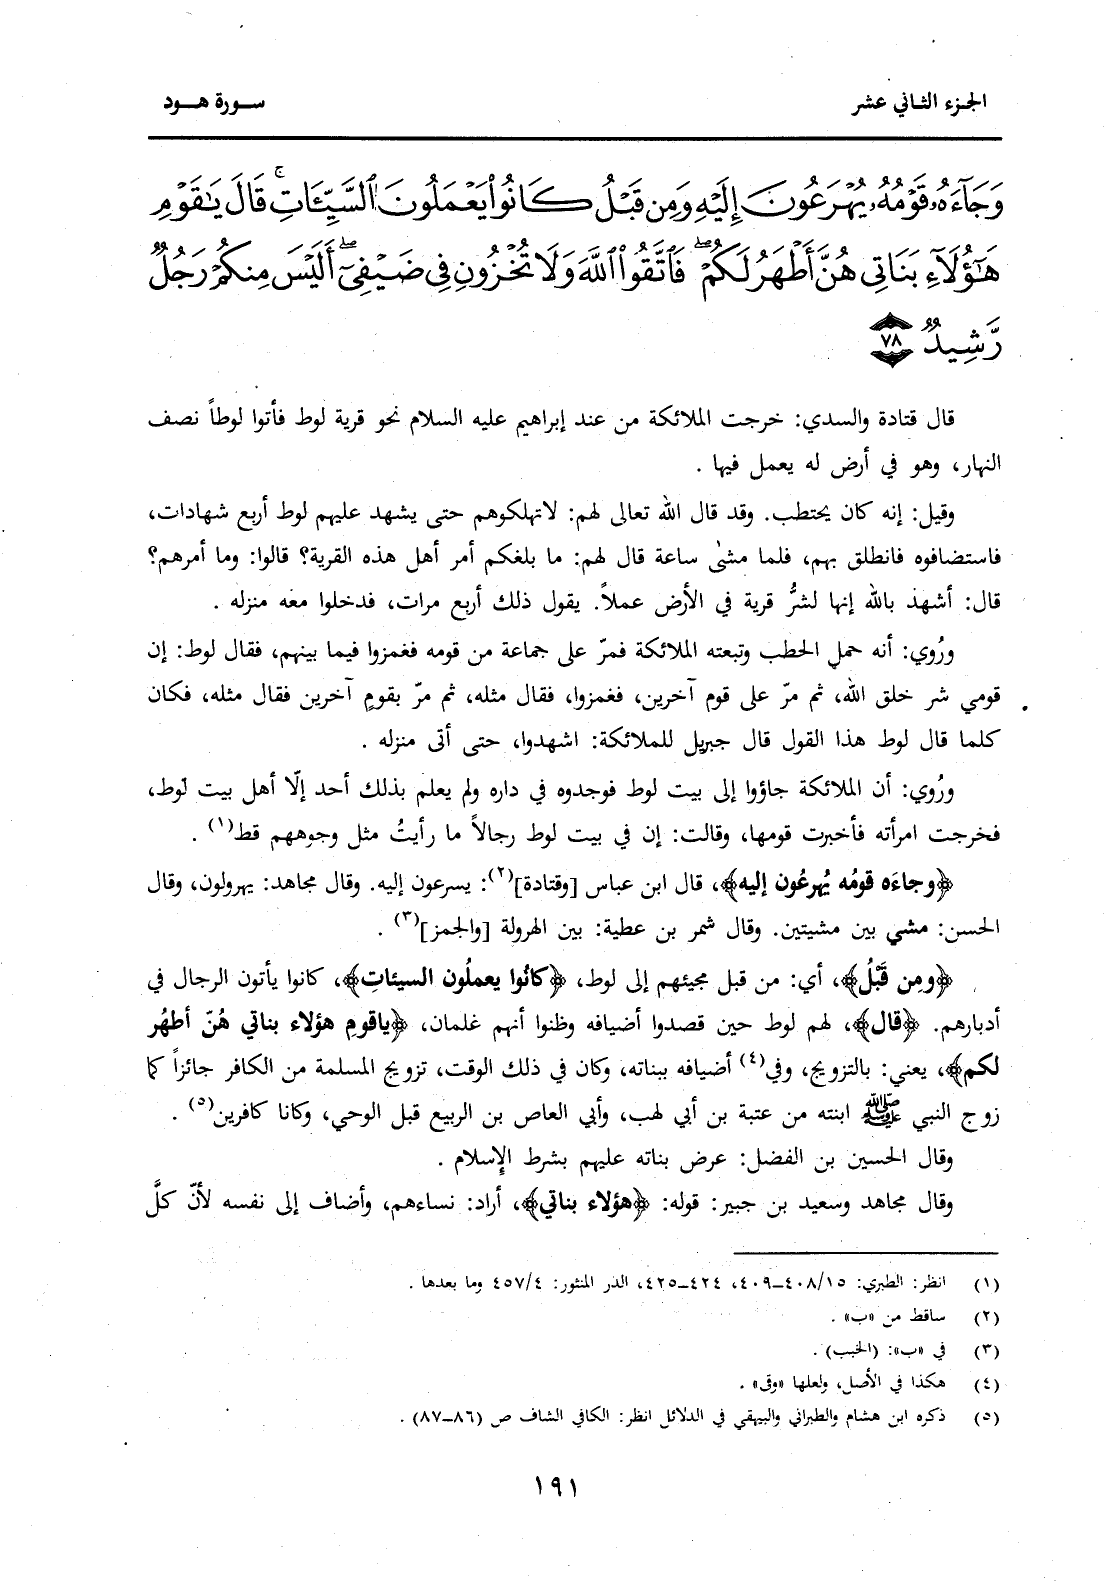 الجزء الثاني عشر
سورة هود
وَجَآءَهُۥ قَوْمُهُۥ يُهْرَعُونَ إِلَيْهِ وَمِن قَبْلُ كَانُوا۟ يَعْمَلُونَ ٱلسَّيِّـَٔاتِ ۚ قَالَ يَٰقَوْمِ
هَٰٓؤُلَآءِ بَنَاتِى هُنَّ أَطْهَرُ لَكُمْ ۖ فَٱتَّقُوا۟ ٱللَّهَ وَلَا تُخْزُونِ فِى ضَيْفِىٓ ۖ أَلَيْسَ مِنكُمْ رَجُلٌ
رَّشِيدٌ ٧٨
قال قتادة والسدي: خرجت الملائكة من عند إبراهيم عليه السلام نحو قرية لوط فأتوا لوطاً نصف
النهار، وهو في أرض له يعمل فيها .
وقيل: إنه كان يحتطب. وقد قال الله تعالى لهم: لاتهلكوهم حتى يشهد عليهم لوط أربع شهادات،
فاستضافوه فانطلق بهم، فلما مشىٰ ساعة قال لهم: ما بلغكم أمر أهل هذه القرية؟ قالوا: وما أمرهم؟
قال: أشهد بالله إنها لشرُّ قرية في الأرض عملاً. يقول ذلك أربع مرات، فدخلوا معه منزله .
ورُوي: أنه حمل الحطب وتبعته الملائكة فمرّ على جماعة من قومه فغمزوا فيما بينهم، فقال لوط: إن
قومي شر خلق الله، ثم مرّ على قوم آخرين، فغمزوا، فقال مثله، ثم مرّ بقومٍ آخرين فقال مثله، فكان
كلما قال لوط هذا القول قال جبريل للملائكة: اشهدوا، حتى أتى منزله .
ورُوي: أن الملائكة جاؤوا إلى بيت لوط فوجدوه في داره ولم يعلم بذلك أحد إلّا أهل بيت لوط،
فخرجت امرأته فأخبرت قومها، وقالت: إن في بيت لوط رجالاً ما رأيتُ مثل وجوههم قط(١) .
﴿وجاءَه قومُه يُهرعُون إليه﴾، قال ابن عباس [وقتادة](٢): يسرعون إليه. وقال مجاهد: يهرولون، وقال
الحسن: مشي بين مشيتين. وقال شمر بن عطية: بين الهرولة [والجمز](٣) .
﴿ومِن قَبْلُ﴾، أي: من قبل مجيئهم إلى لوط، ﴿كانُوا يعملُون السيئاتِ﴾، كانوا يأتون الرجال في
أدبارهم. ﴿قال﴾، لهم لوط حين قصدوا أضيافه وظنوا أنهم غلمان، ﴿ياقومِ هؤلاء بناتي هُنّ أطهُر
لكم﴾، يعني: بالتزويج، وفي(٤) أضيافه ببناته، وكان في ذلك الوقت، تزويج المسلمة من الكافر جائزاً كما
زوج النبي ﷺ ابنته من عتبة بن أبي لهب، وأبي العاص بن الربيع قبل الوحي، وكانا كافرين(٥) .
وقال الحسين بن الفضل: عرض بناته عليهم بشرط الإسلام .
وقال مجاهد وسعيد بن جبير: قوله: ﴿هؤلاء بناتي﴾، أراد: نساءهم، وأضاف إلى نفسه لأنّ كلَّ
(١) انظر: الطبري: ١٥/٤٠٨ــ٤٠٩، ٤٢٤ــ٤٢٥، الدر المنثور: ٤/٤٥٧ وما بعدها .
(٢) ساقط من «ب» .
(٣) في «ب»: (الخبب) .
(٤) هكذا في الأصل، ولعلها «وقى» .
(٥) ذكره ابن هشام والطبراني والبيهقي في الدلائل انظر: الكافي الشاف ص (٨٦ــ٨٧) .
١٩١